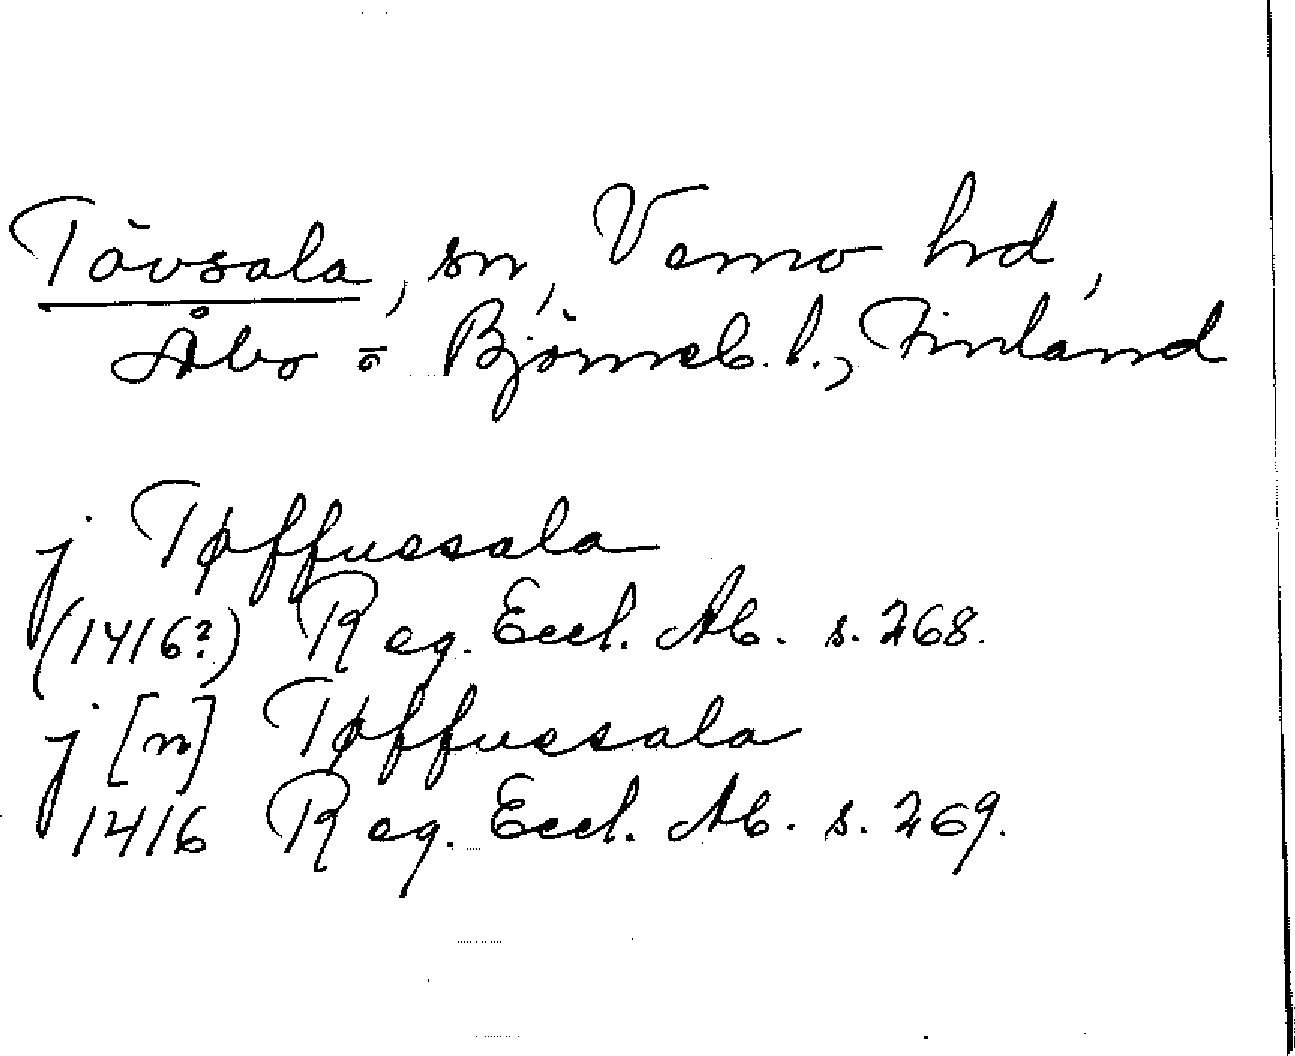 Tövsala, sn, Vemo hd,
Åbo o Björneb. l., Finland
j Tøffuesala
(1416?) Reg. Eccl. Ab. s. 268.
j [n] Tøffuesala
1416 Reg. Eccl. Ab. s. 269.